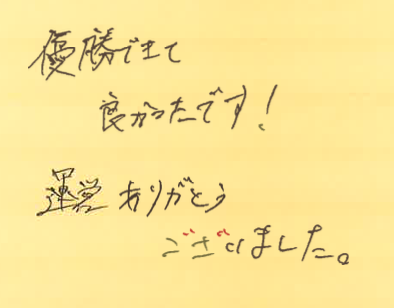 優勝できて
良かったです！
運営ありがとう
ございました。